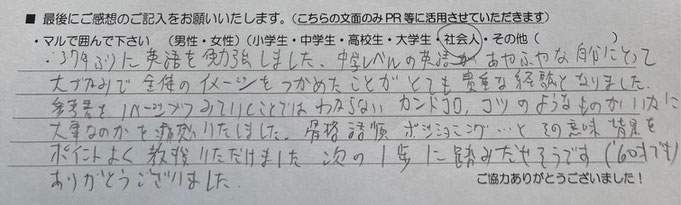 ■ 最後にご感想のご記入をお願いいたします。(こちらの文面のみPR等に活用させていただきます)
・マルで囲んで下さい (男性・女性)(小学生・中学生・高校生・大学生・社会人・その他( )
ぶりに英語を勉強しました。中学レベルの英語があやふやな自分にとって
大づかみで全体のイメージをつかめたことがとても貴重な経験となりました。
参考書を1ページづつみていくことではわからないカンドコロ、コツのようなものがいかに
大事なのかを痛感いたしました。骨格 語順 ポジショニング…と その意味 背景を
ポイントよく教授いただけました 次の1歩に踏みだせそうです(60才でも)
ありがとうございました。
ご協力ありがとうございました!